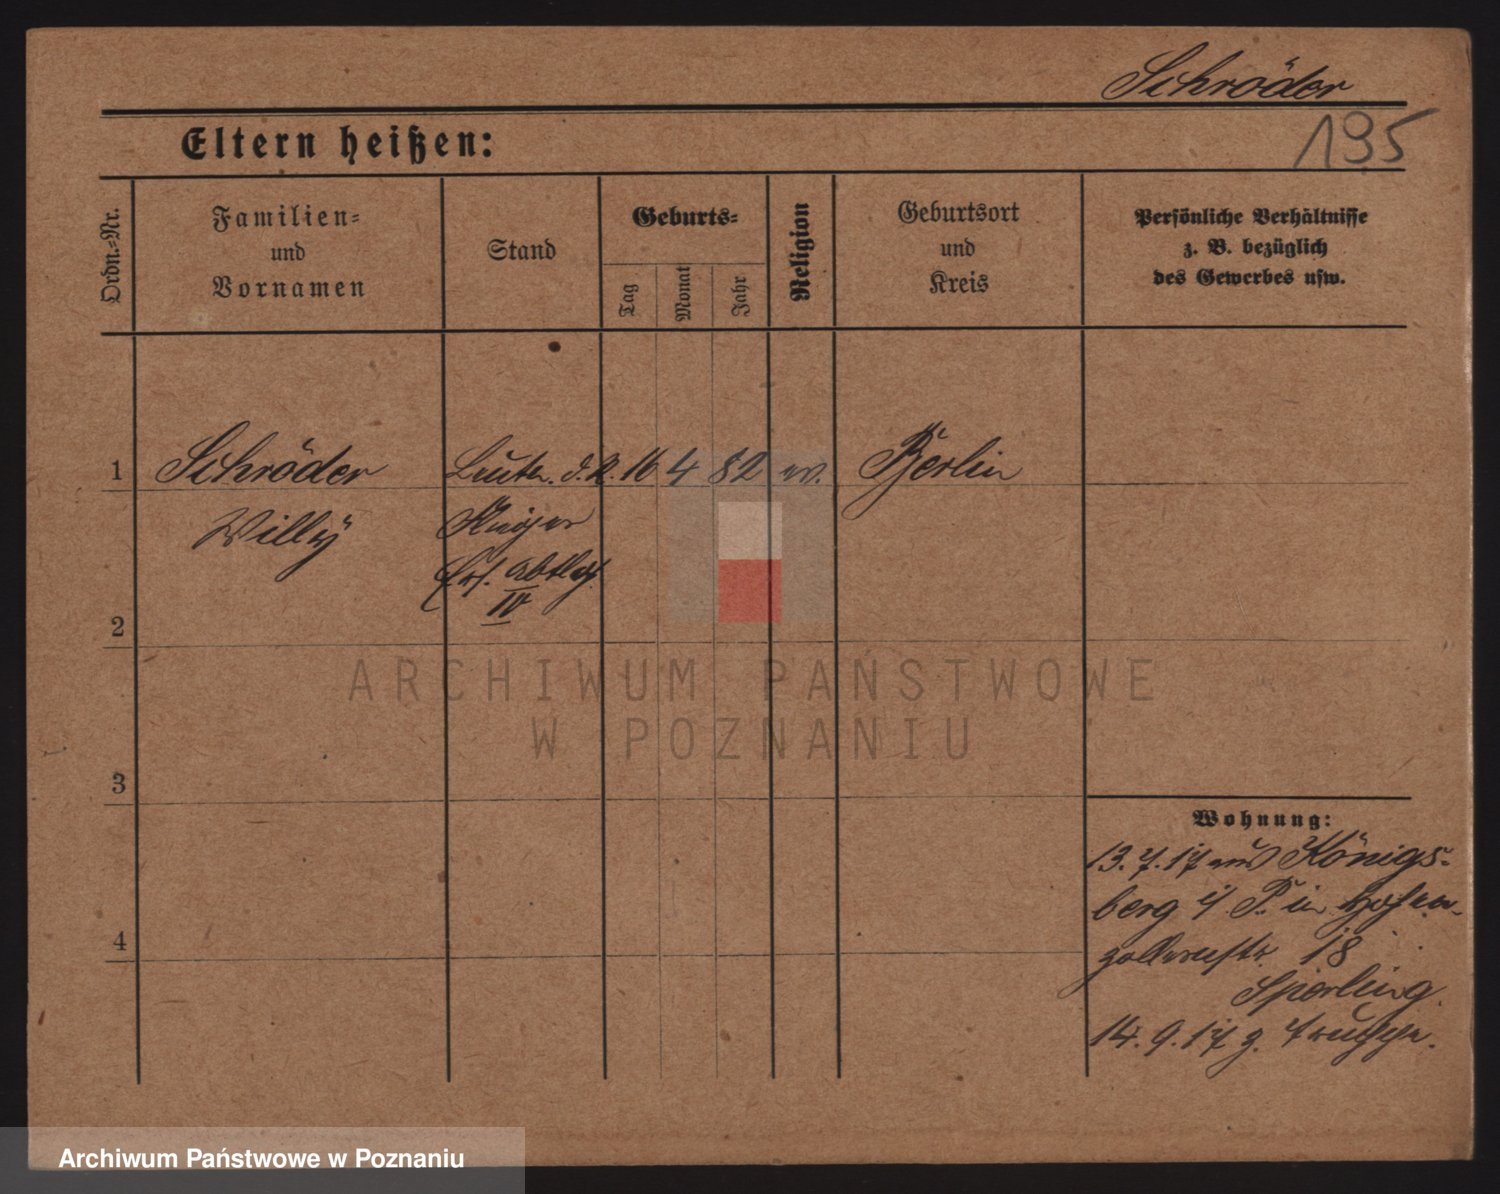 Schröder
195
Eltern heißen:
Ordn.-Nr.
Familien-
und
Vornamen
Stand
Geburts-
Tag
Monat
Jahr
Religion
Geburtsort
und
Kreis
Persönliche Verhältnisse
z. B. bezüglich
des Gewerbes usw.
1 Schröder Leutn. d. R. 16 4 82 ev. Berlin
Willy
Ers. Abtlg.
IV
2
3
4
ARCHIWUM PAŃSTWOWE
W POZNANIU
Wohnung:
13.7.17 aus Königs-
berg i/ P. in Hohen-
zollernstr. 18
Sperling.
14.9.17 z. Truppe.
Archiwum Państwowe w Poznaniu